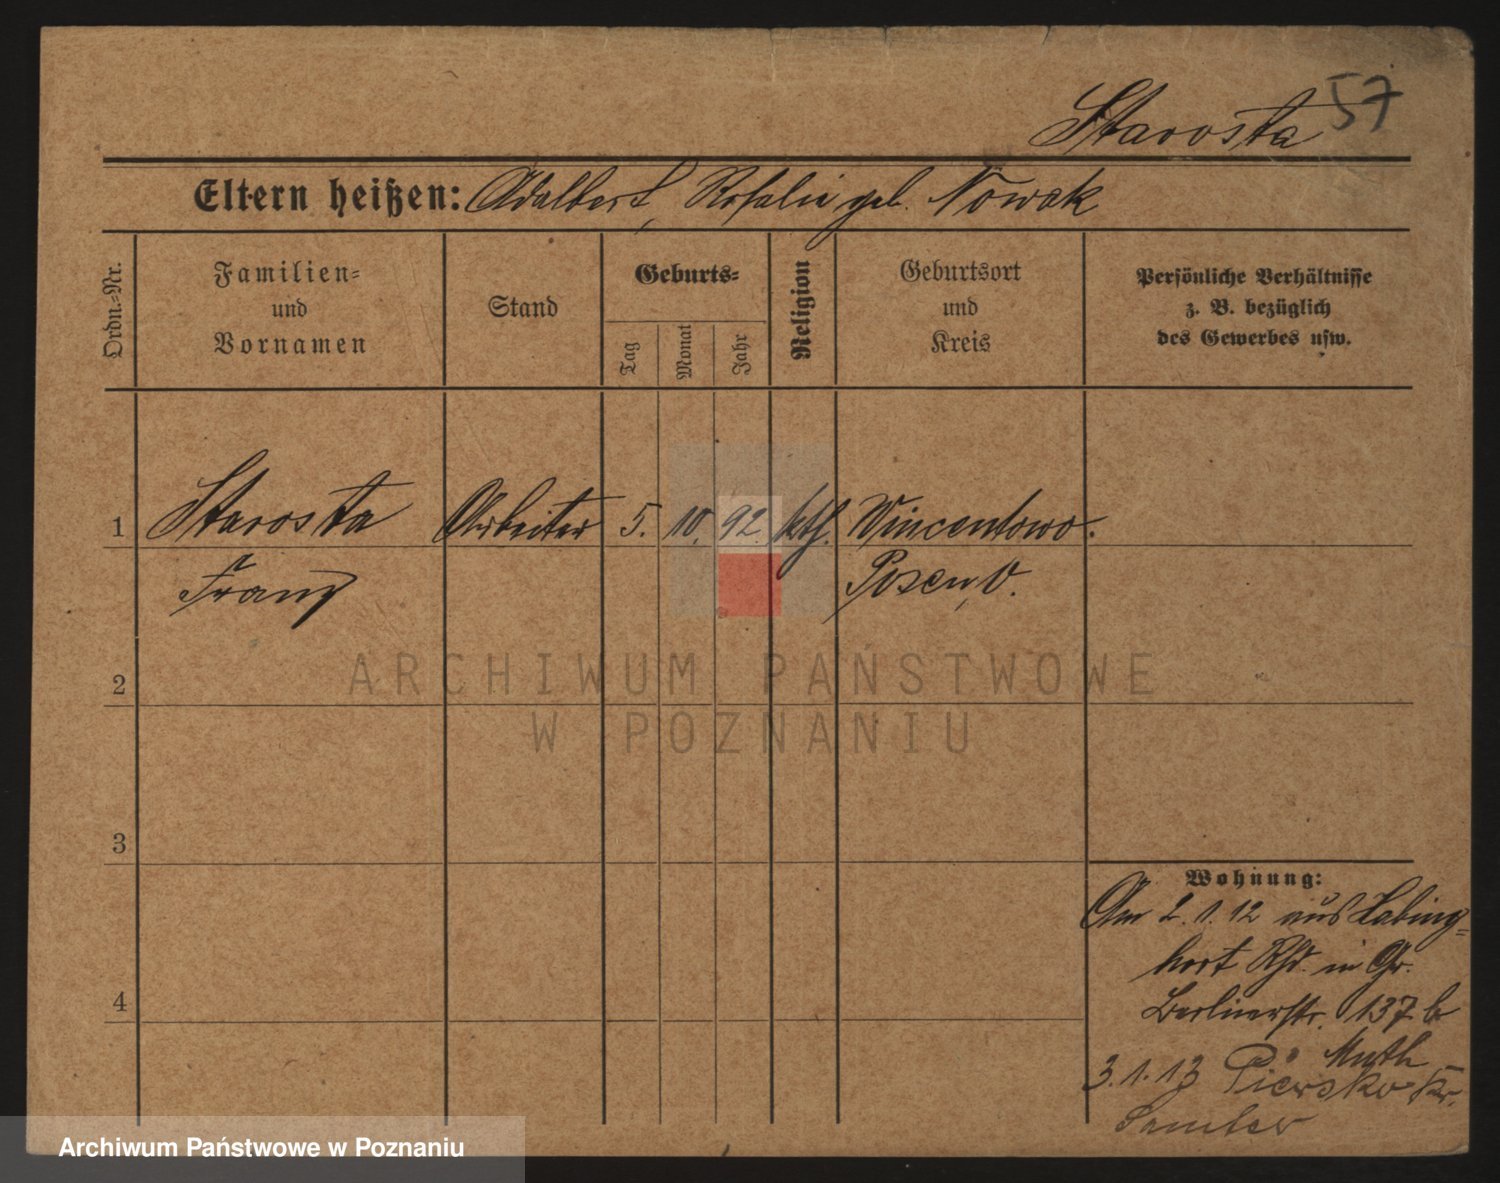 Starosta 57
Eltern heißen: Adalbert, Rosalie geb. Nowak
Ordn.-Nr.
Familien- und Vornamen
Stand
Geburts-
Tag
Monat
Jahr
Religion
Geburtsort und Kreis
Persönliche Verhältnisse
z. B. bezüglich
des Gewerbes usw.
1 Starosta Arbeiter 5. 10. 92. kth. Wincentowo.
Franz Posen, O.
2
3
4
Wohnung:
Am 2.1.12 aus Labing=
hort Rhd. in Gr.
Berlinerstr. 137 b
Muth
3.1.13 Piersko Kr.
Samter
ARCHIWUM PAŃSTWOWE
W POZNANIU
Archiwum Państwowe w Poznaniu